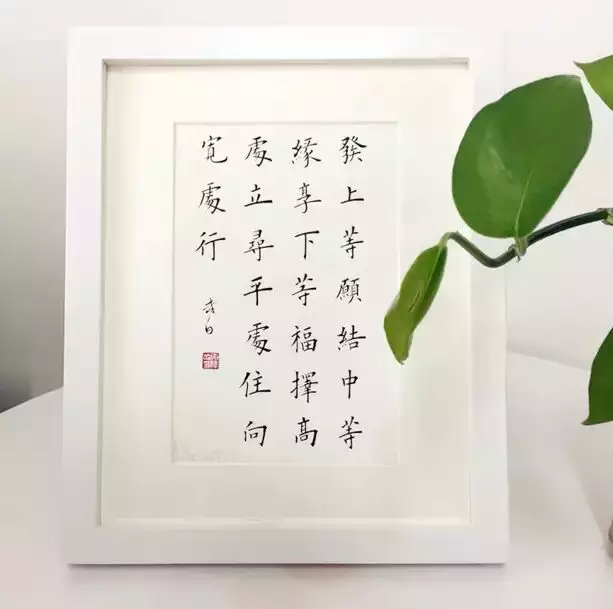 發上等願結中等
緣享下等福擇高
處立尋平處住向
寬處行